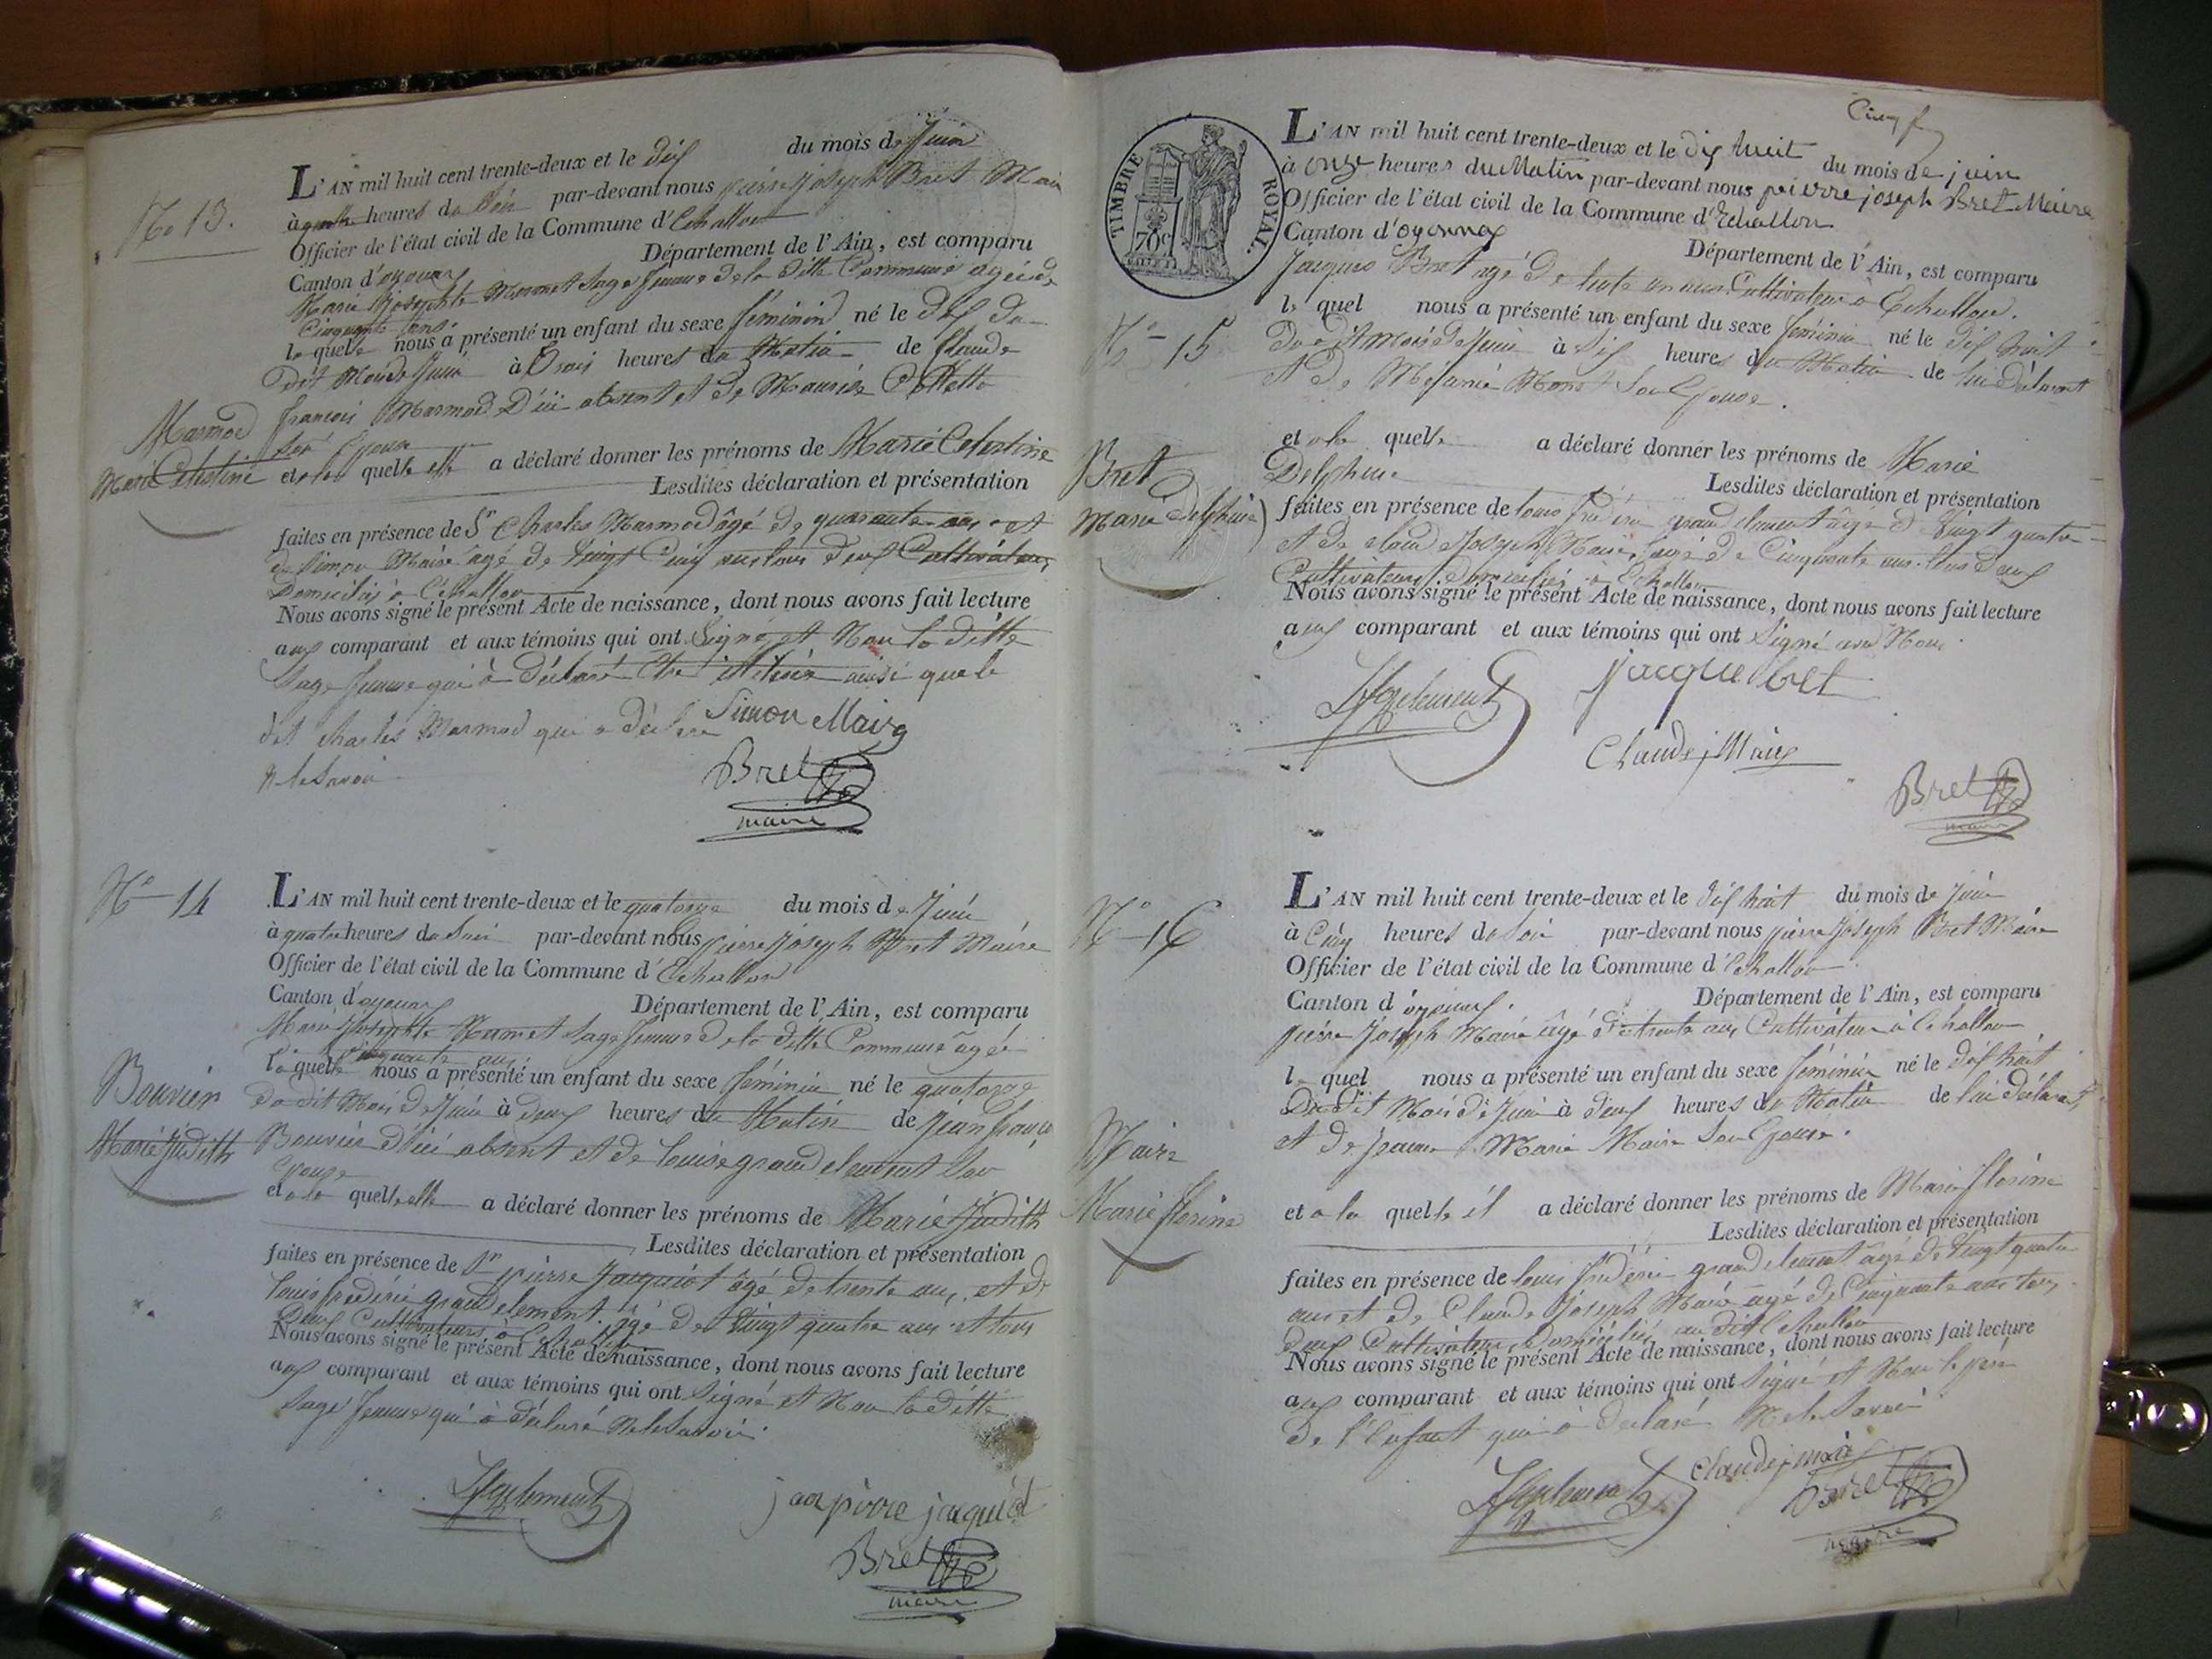 No 13.
L'AN mil huit cent trente-deux et le dix du mois de Juin
à quatre heures du Soir par-devant nous pierre Joseph Bret Maire
Officier de l'état civil de la Commune d'Echallon
Canton d'oyonnax Département de l'Ain, est comparu
Marie Josephte Mermet Sage femme de la ditte Commune agée de
Cinquante ans
laquelle nous a présenté un enfant du sexe féminin né le dix du
dit Mois de Juin à trois heures du Matin de Claude
françois Marmod d'ici absent et de
Son Epouse
Marmod
Marie Celestine
et a la quelle elle a déclaré donner les prénoms de Marie Celestine
Lesdites déclaration et présentation
faites en présence de Sr Charles Marmod âgé de quarante ans et
de Simon Maire agé de Vingt Cinq ans tous deux Cultivateurs
Domiciliés à Echallon
Nous avons signé le présent Acte de naissance, dont nous avons fait lecture
aux comparant et aux témoins qui ont Signé et Non la ditte
Sage femme qui à déclaré être illitérée ainsi que le
dit Charles Marmod qui a déclaré
Ne le Savoir
Simon Maire
Bret
maire
No 14
L'AN mil huit cent trente-deux et le quatorze du mois de Juin
à quatre heures du Soir par-devant nous pierre Joseph Bret Maire
Officier de l'état civil de la Commune d'Echallon
Canton d'oyonnax Département de l'Ain, est comparu
Marie Josephte Mermet Sage femme de la ditte Commune âgée
Cinquante ans
laquelle nous a présenté un enfant du sexe féminin né le quatorze
du dit Mois de Juin à deux heures du Matin de Jean françois
Bouvier d'ici absent et de Louise grandclement Son
Epouse
Bouvier
Marie Judith
et a la quelle elle a déclaré donner les prénoms de Marie Judith
Lesdites déclaration et présentation
faites en présence de Sr pierre Jacquiot âgé de trente ans, et de
Louis frederic grandclement âgé de Vingt quatre ans et tous
Deux Cultivateurs à Echallon
Nous avons signé le présent Acte de naissance, dont nous avons fait lecture
aux comparant et aux témoins qui ont Signé et Non la ditte
Sage femme qui à déclaré Ne le Savoir.
jan pirre jaquiot
Bret
maire
TIMBRE ROYAL.
70c
L'AN mil huit cent trente-deux et le dix huit du mois de juin
à onze heures du Matin par-devant nous pierre joseph Bret Maire
Officier de l'état civil de la Commune d'Echallon
Canton d'oyonnax Département de l'Ain, est comparu
Jacques Bret agé de trente un ans Cultivateur à Echallon.
No 15
le quel nous a présenté un enfant du sexe féminin né le dix huit
du dit Mois de Juin à Six heures du Matin de lui déclarant
et de Son Epouse.
Bret
Marie delphine
et a la quelle a déclaré donner les prénoms de Marie
Delphine
Lesdites déclaration et présentation
faites en présence de louis fréderic grandclement âgé de Vingt quatre
et de Claude Joseph Maire agé de Cinquante ans tous deux
Cultivateurs domiciliés à Echallon
Nous avons signé le présent Acte de naissance, dont nous avons fait lecture
aux comparant et aux témoins qui ont Signé avec Nous.
jacque bret
Claude j Maire
Bret
maire
No 16
L'AN mil huit cent trente-deux et le dix huit du mois de Juin
à Cinq heures du Soir par-devant nous pierre Joseph Bret Maire
Officier de l'état civil de la Commune d'Echallon
Canton d'oyonnax. Département de l'Ain, est comparu
pierre Joseph Maire âgé de trente ans Cultivateur à Echallon
le quel nous a présenté un enfant du sexe féminin né le dix huit
Du dit Mois de Juin à deux heures du Matin de lui déclarant
et de Jeanne Marie Maire Son Epouse.
Maire
Marie florine
et a la quelle il a déclaré donner les prénoms de Marie florine
Lesdites déclaration et présentation
faites en présence de louis fréderic grandclement agé de Vingt quatre
ans et de Claude Joseph Maire agé de Cinquante ans tous
deux Cultivateurs domiciliés au dit Echallon
Nous avons signé le présent Acte de naissance, dont nous avons fait lecture
aux comparant et aux témoins qui ont Signé et Non le père
de l'Enfant qui à déclaré Ne le Savoir
Claude j maire
Bret
maire